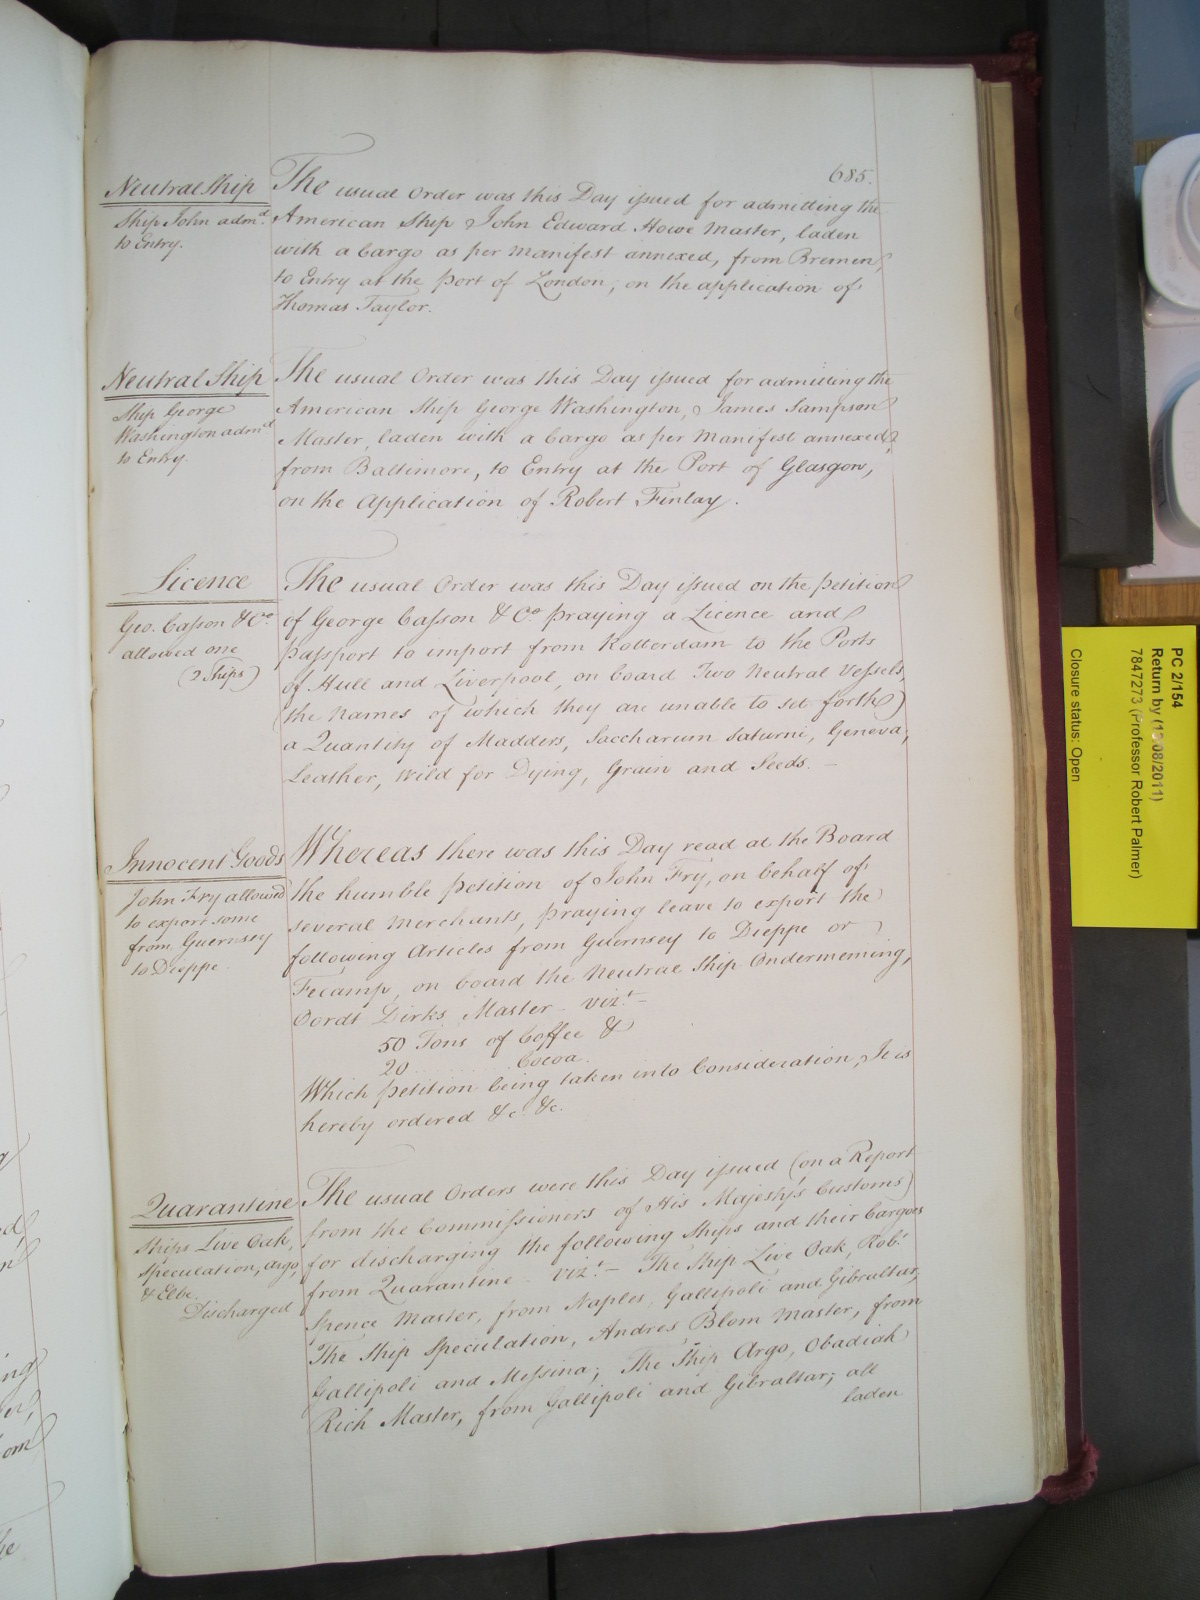 685.
Neutral Ship
Ship John adm.d
to Entry.
The usual Order was this Day issued for admitting the
American Ship John Edward Howe Master, laden
with a Cargo as per Manifest annexed, from Bremen,
to Entry at the Port of London, on the application of
Thomas Taylor.
Neutral Ship
Ship George
Washington adm.d
to Entry.
The usual Order was this Day issued for admitting the
American Ship George Washington, James Sampson
Master, laden with a Cargo as per Manifest annexed,
from Baltimore, to Entry at the Port of Glasgow,
on the Application of Robert Finlay.
Licence
Geo. Casson & Co.
allowed one
(2 Ships)
The usual Order was this Day issued on the petition
of George Casson & Co. praying a Licence and
Passport to import from Rotterdam to the Ports
of Hull and Liverpool, on board Two Neutral Vessels,
(the Names of which they are unable to set forth)
a Quantity of Madders, Saccharum Saturni, Geneva,
Leather, Wild for Dying, Grain and Seeds. —
Innocent Goods
John Fry allowed
to export some
from Guernsey
to Dieppe.
Whereas there was this Day read at the Board
the humble petition of John Fry, on behalf of
several Merchants, praying leave to export the
following Articles from Guernsey to Dieppe or
Fecamp, on board the Neutral Ship Ondermeming,
Oordt Dirks Master - viz.t —
50 Tons of Coffee &
20 ........ Cocoa.
Which petition being taken into Consideration, It is
hereby ordered &c. &c.
Quarantine
Ships Live Oak,
Speculation, Argo,
& Elbe.
Discharged
The usual Orders were this Day issued (on a Report
from the Commissioners of His Majesty's Customs)
for discharging the following Ships and their Cargoes
from Quarantine - viz.t — The Ship Live Oak, Rob.t
Spence Master, from Naples, Gallipoli and Gibraltar,
The Ship Speculation, Andres Blom Master, from
Gallipoli and Messina; The Ship Argo, Obadiah
Rich Master, from Gallipoli and Gibraltar; all
laden
PC 2/154
Return by (15/08/2011)
7847273 (Professor Robert Palmer)
Closure status: Open